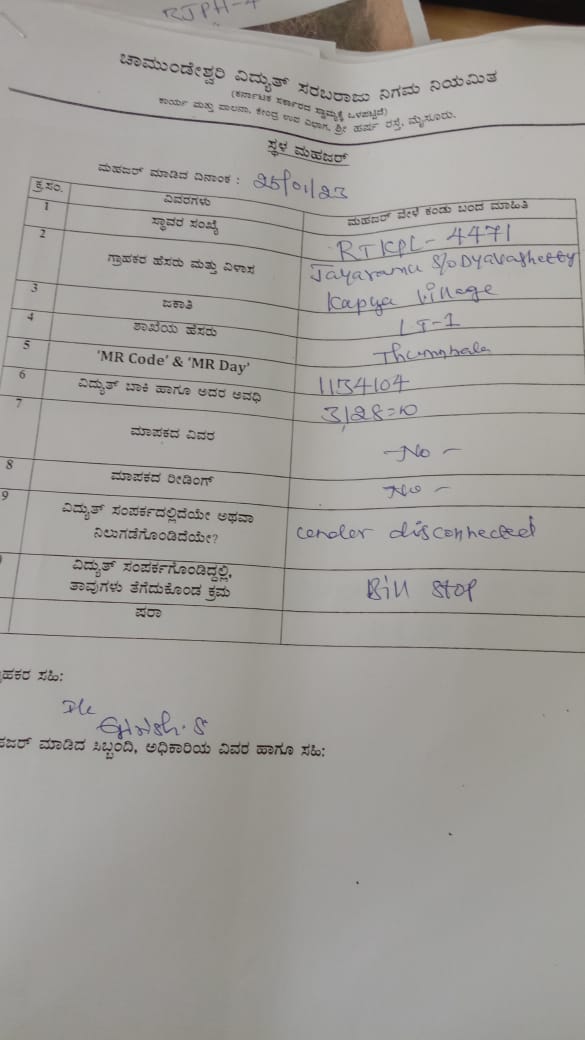 RJPH-4
ಚಾಮುಂಡೇಶ್ವರಿ ವಿದ್ಯುತ್ ಸರಬರಾಜು ನಿಗಮ ನಿಯಮಿತ
(ಕರ್ನಾಟಕ ಸರ್ಕಾರದ ಸ್ವಾಮ್ಯಕ್ಕೆ ಒಳಪಟ್ಟಿದೆ)
ಕಾರ್ಯ ಮತ್ತು ಪಾಲನಾ, ಕೇಂದ್ರ ಉಪ ವಿಭಾಗ, ಶ್ರೀ ಹರ್ಷ ರಸ್ತೆ, ಮೈಸೂರು.
ಸ್ಥಳ ಮಹಜರ್
ಮಹಜರ್ ಮಾಡಿದ ದಿನಾಂಕ : 25/01/23
ಕ್ರ.ಸಂ. ವಿವರಗಳು ಮಹಜರ್ ವೇಳೆ ಕಂಡು ಬಂದ ಮಾಹಿತಿ
1 ಸ್ಥಾವರ ಸಂಖ್ಯೆ RTKPL-4471
2 ಗ್ರಾಹಕರ ಹೆಸರು ಮತ್ತು ವಿಳಾಸ Jayaramu S/o Dyavashetty
Kapya Village
3 ಜಕಾತಿ LT-1
4 ಶಾಖೆಯ ಹೆಸರು Thumbala
5 'MR Code' & 'MR Day' 1134104
6 ವಿದ್ಯುತ್ ಬಾಕಿ ಹಾಗೂ ಅದರ ಅವಧಿ 3128=10
7 ಮಾಪಕದ ವಿವರ -No-
8 ಮಾಪಕದ ರೀಡಿಂಗ್ No-
9 ವಿದ್ಯುತ್ ಸಂಪರ್ಕದಲ್ಲಿದೆಯೇ ಅಥವಾ
ನಿಲುಗಡೆಗೊಂಡಿದೆಯೇ? cender disconnected
ವಿದ್ಯುತ್ ಸಂಪರ್ಕಗೊಂಡಿದ್ದಲ್ಲಿ,
ತಾವುಗಳು ತೆಗೆದುಕೊಂಡ ಕ್ರಮ Bill stop
ಷರಾ
ಹಕರ ಸಹಿ:
Girish.S
ಹಜರ್ ಮಾಡಿದ ಸಿಬ್ಬಂದಿ, ಅಧಿಕಾರಿಯ ವಿವರ ಹಾಗೂ ಸಹಿ: